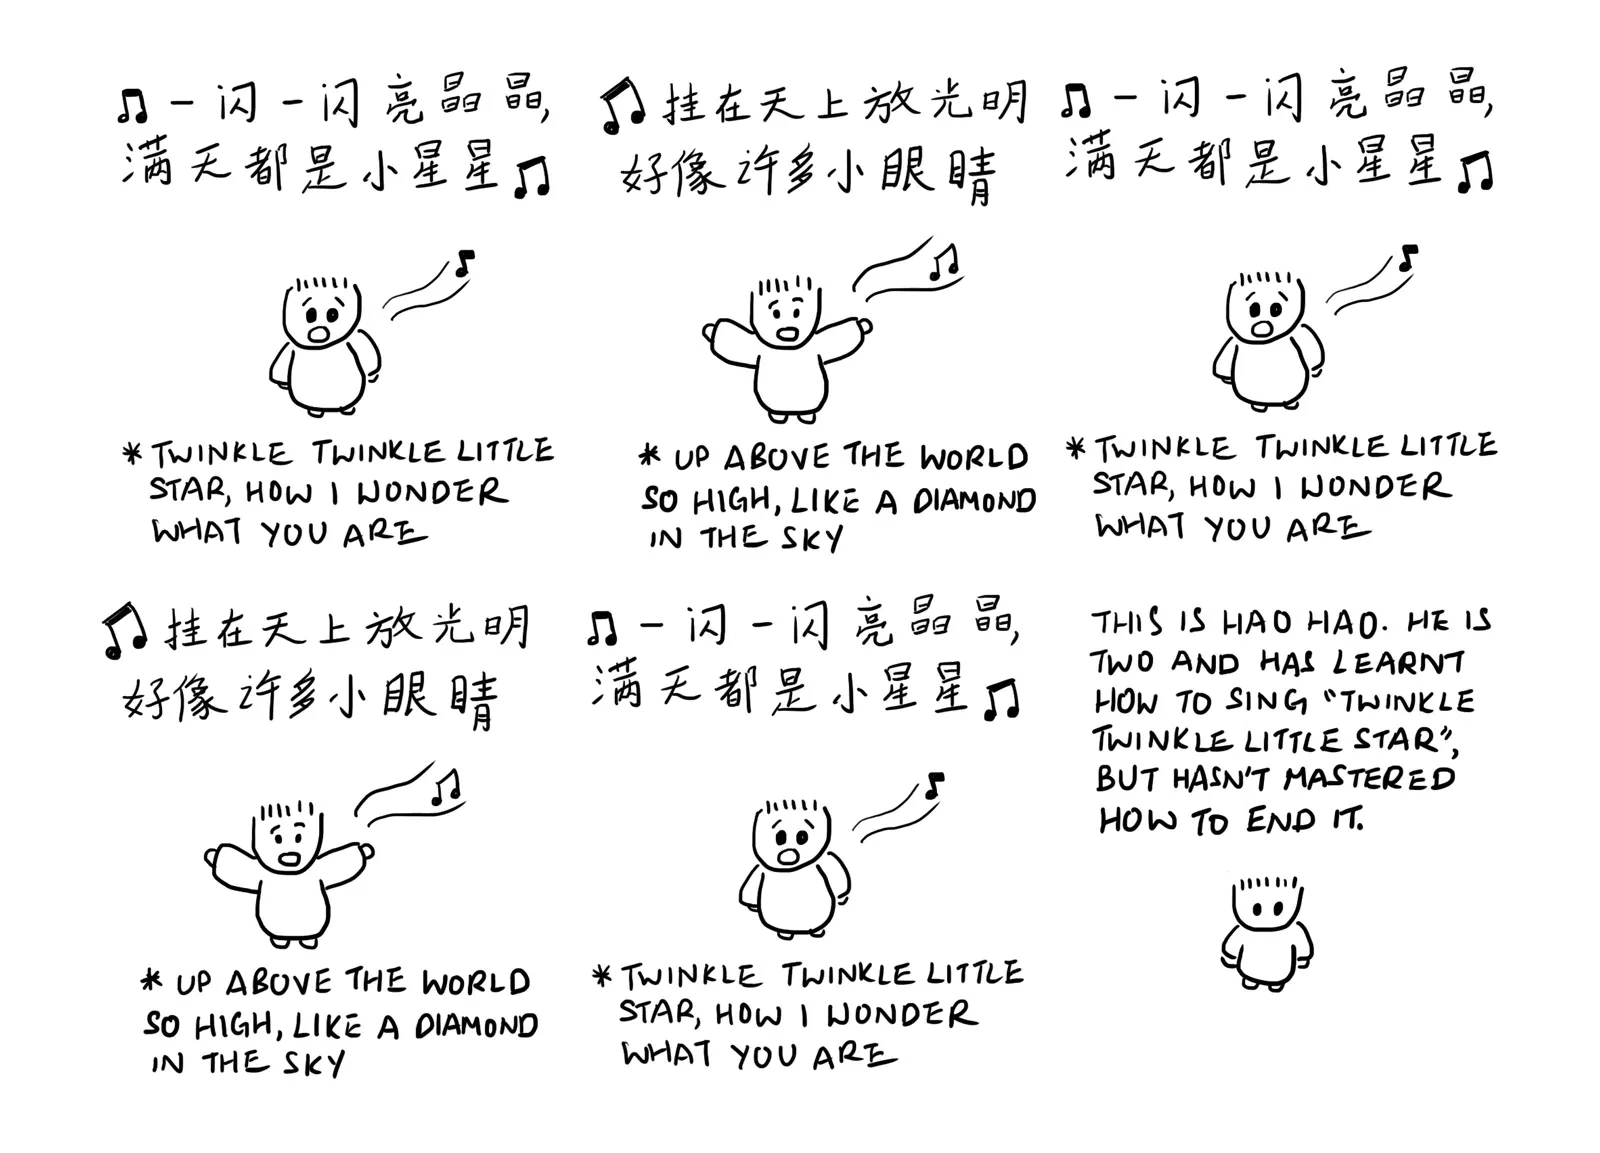 一闪一闪亮晶晶,
满天都是小星星
* TWINKLE TWINKLE LITTLE
STAR, HOW I WONDER
WHAT YOU ARE
挂在天上放光明
好像许多小眼睛
* UP ABOVE THE WORLD
SO HIGH, LIKE A DIAMOND
IN THE SKY
一闪一闪亮晶晶,
满天都是小星星
* TWINKLE TWINKLE LITTLE
STAR, HOW I WONDER
WHAT YOU ARE
挂在天上放光明
好像许多小眼睛
* UP ABOVE THE WORLD
SO HIGH, LIKE A DIAMOND
IN THE SKY
一闪一闪亮晶晶,
满天都是小星星
* TWINKLE TWINKLE LITTLE
STAR, HOW I WONDER
WHAT YOU ARE
THIS IS HAO HAO. HE IS
TWO AND HAS LEARNT
HOW TO SING “TWINKLE
TWINKLE LITTLE STAR”,
BUT HASN'T MASTERED
HOW TO END IT.